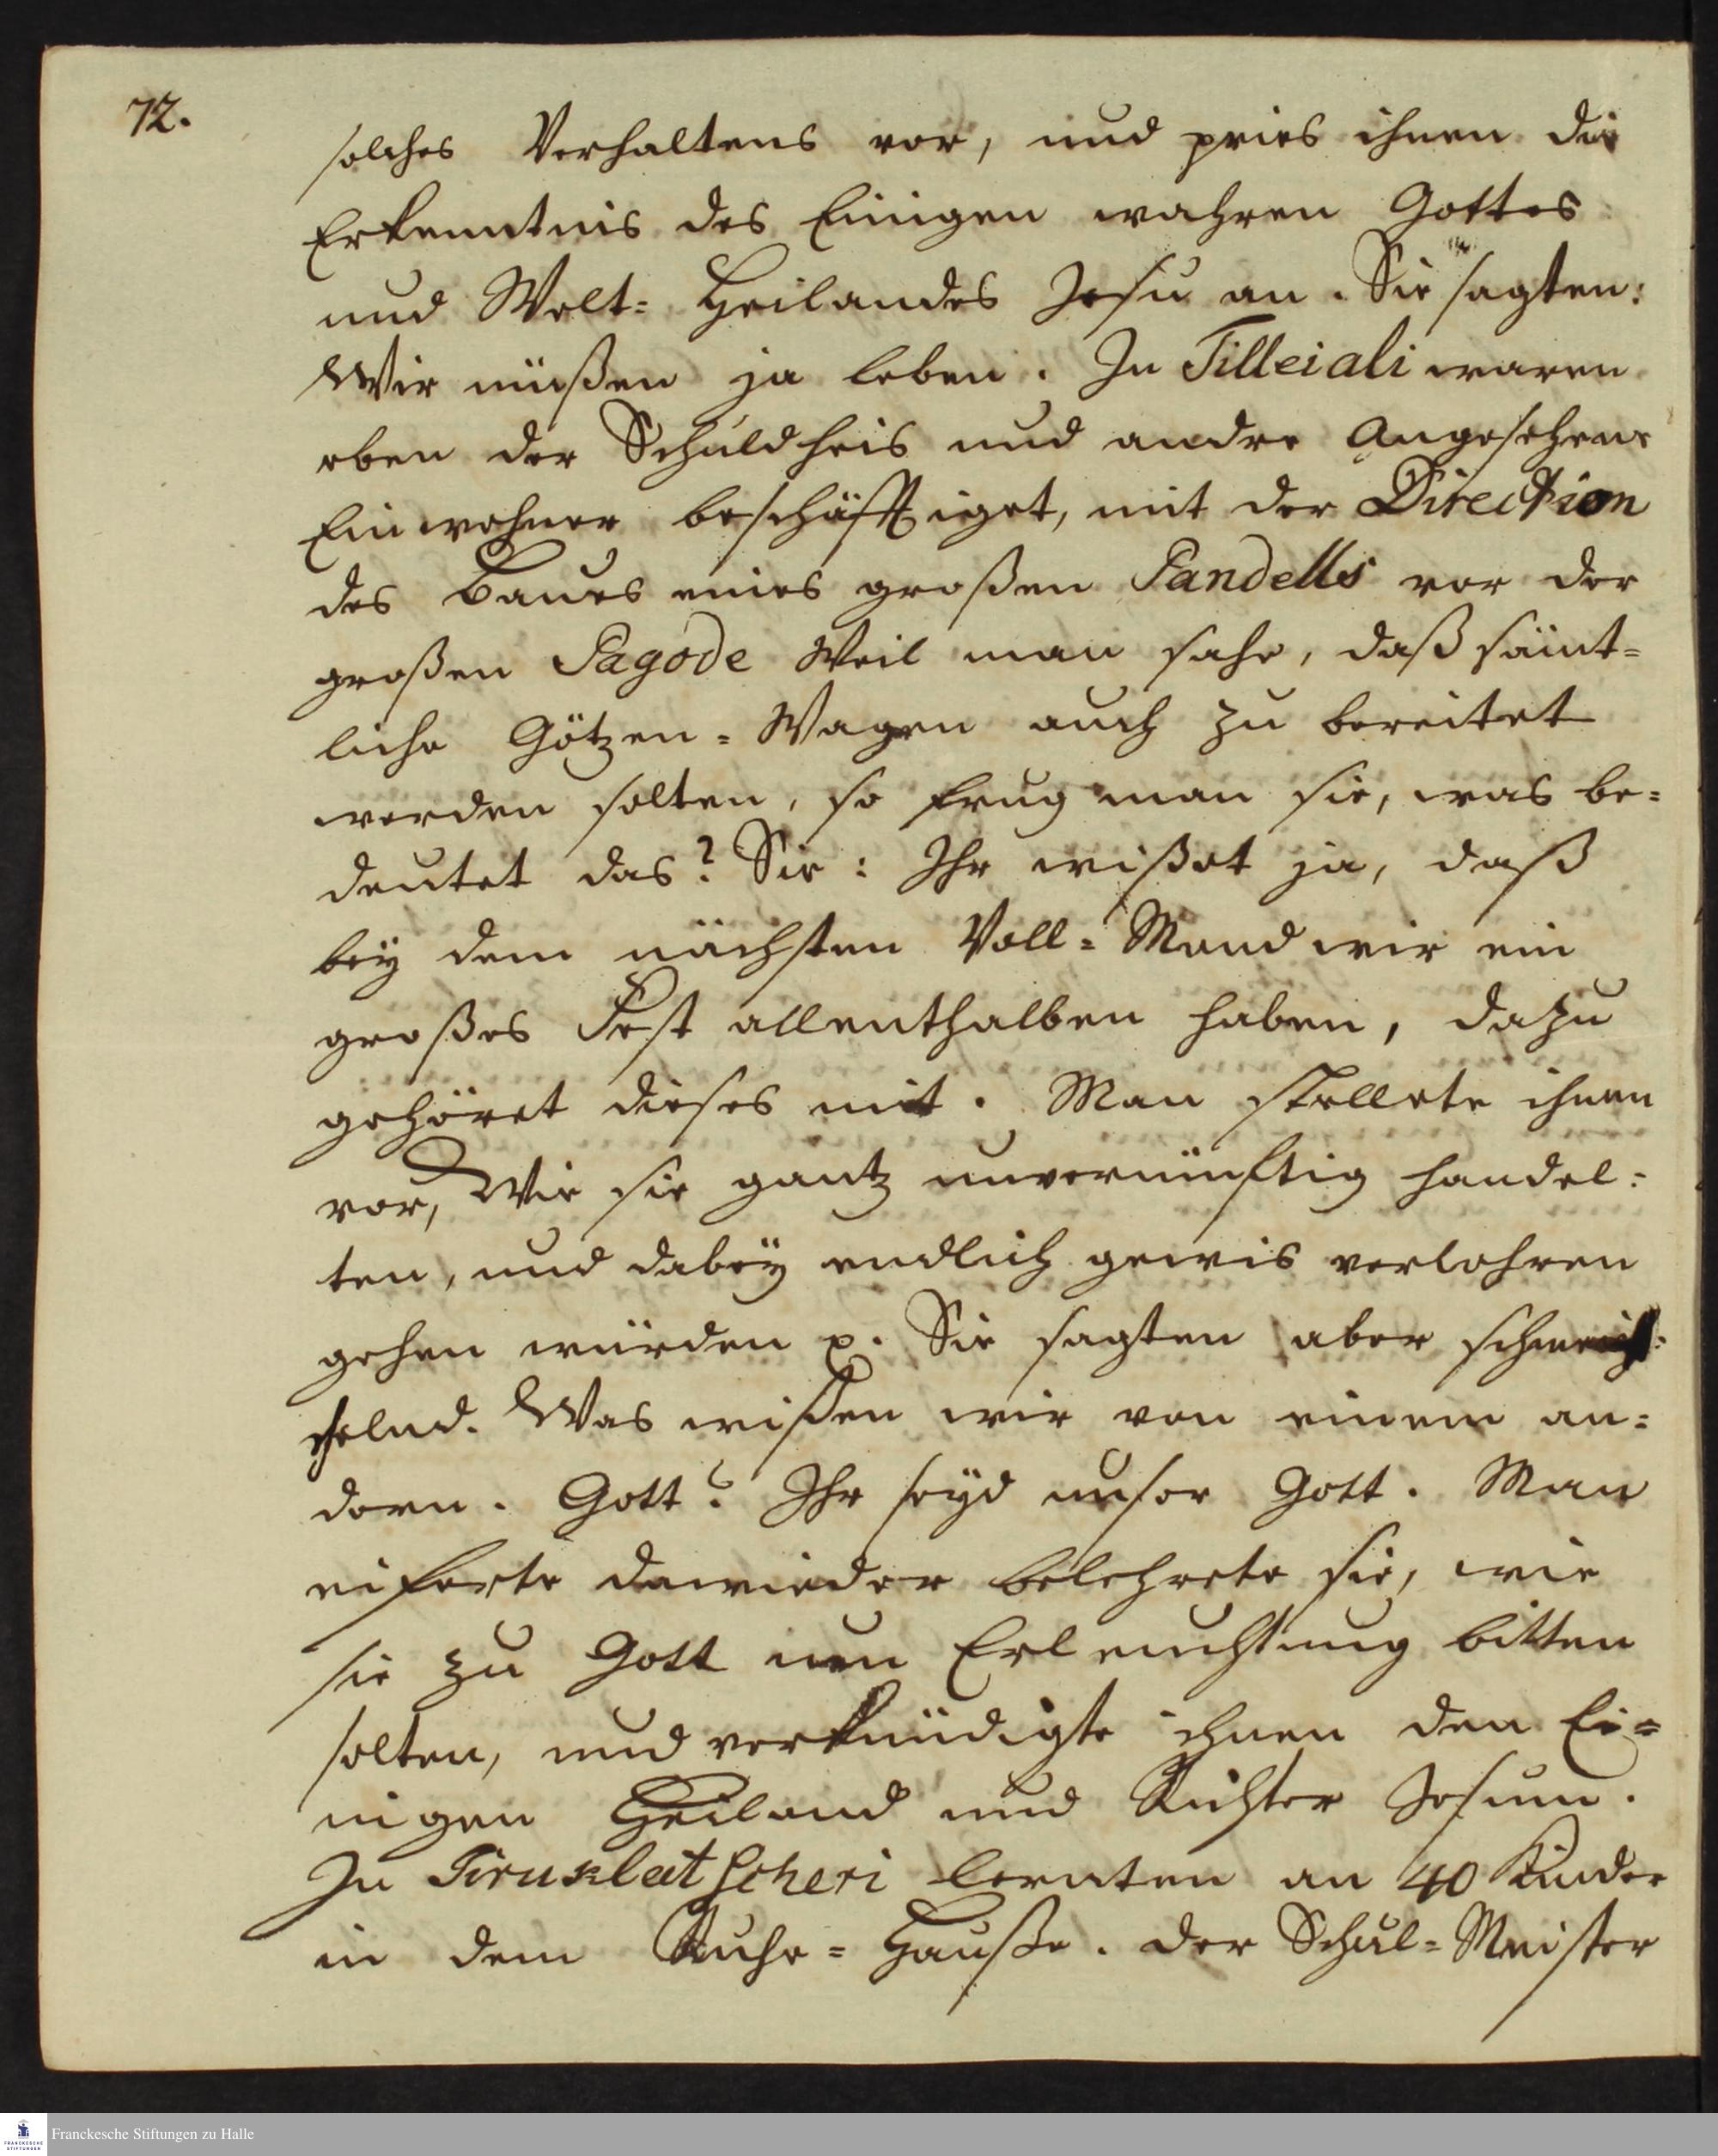 72.
solches Verhaltens vor, und pries ihnen die
Erkenntnis des Einigen wahren Gottes
und Welt= Heilandes Jesu an. Sie sagten:
Wir müßen ja leben. In Tilleiali waren
eben der Schuldheis und andre Angesehene
Einwohner beschäfftiget, mit der Direction
des Baues eines großen Pandells vor der
großen Pagode Weil man sahe, daß sämt=
liche Götzen=Wagen auch zu bereitet
werden solten, so frug man sie, was be=
deutet das? Sie: Ihr wißet ja, daß
bey dem nächsten Voll=Mond wir ein
großes Fest allenthalben haben, dazu
gehöret dieses mit. Man stellete ihnen
vor, Wie sie gantz unvernünftig handel=
ten, und dabey endlich gewis verlohren
gehen würden p. Sie sagten aber schmeich=
chelnd. Was wißen wir von einem an=
dern. Gott? Ihr seyd unser Gott. Man
eiferte dawieder belehrete sie, wie
sie zu Gott um Erleuchtung bitten
solten, und verkündigte ihnen den Ei=
nigen Heiland und Richter Jesum.
In Tirukleitscheri lernten an 40 Kinder
in dem Ruhe=Hauße. Der Schul=Meister
Franckesche Stiftungen zu Halle